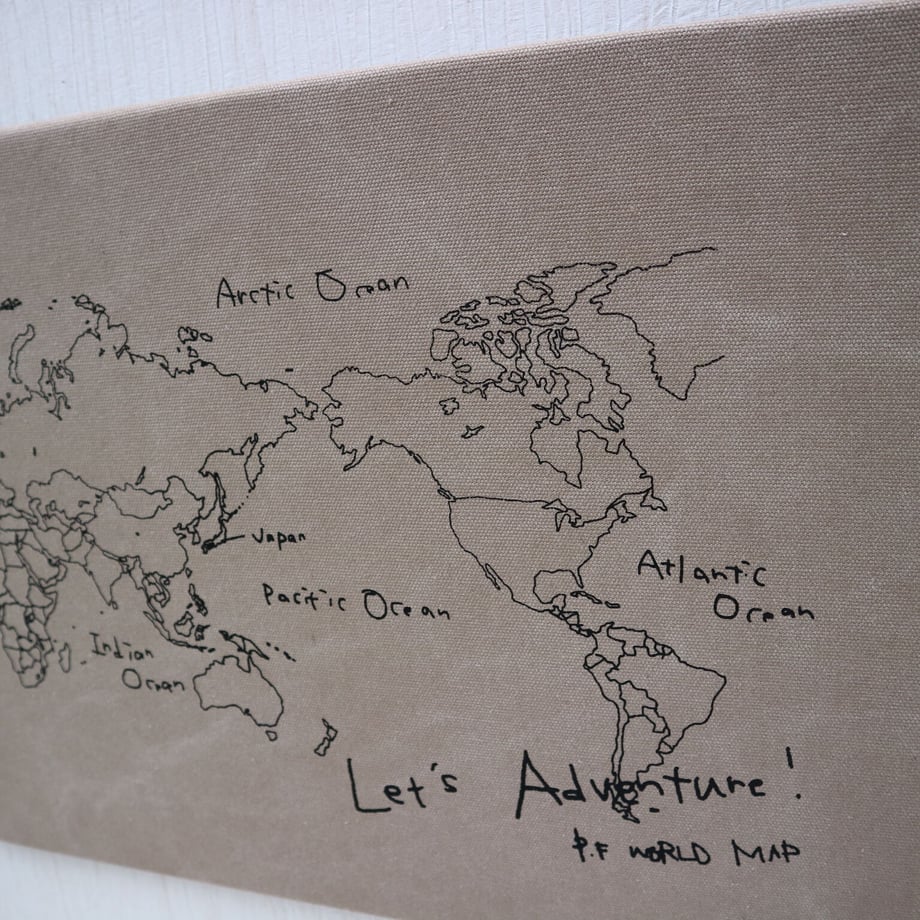 Arctic Ocean
Japan
Pacific Ocean
Atlantic
Ocean
Indian
Ocean
Let's Adventure!
P.F WORLD MAP